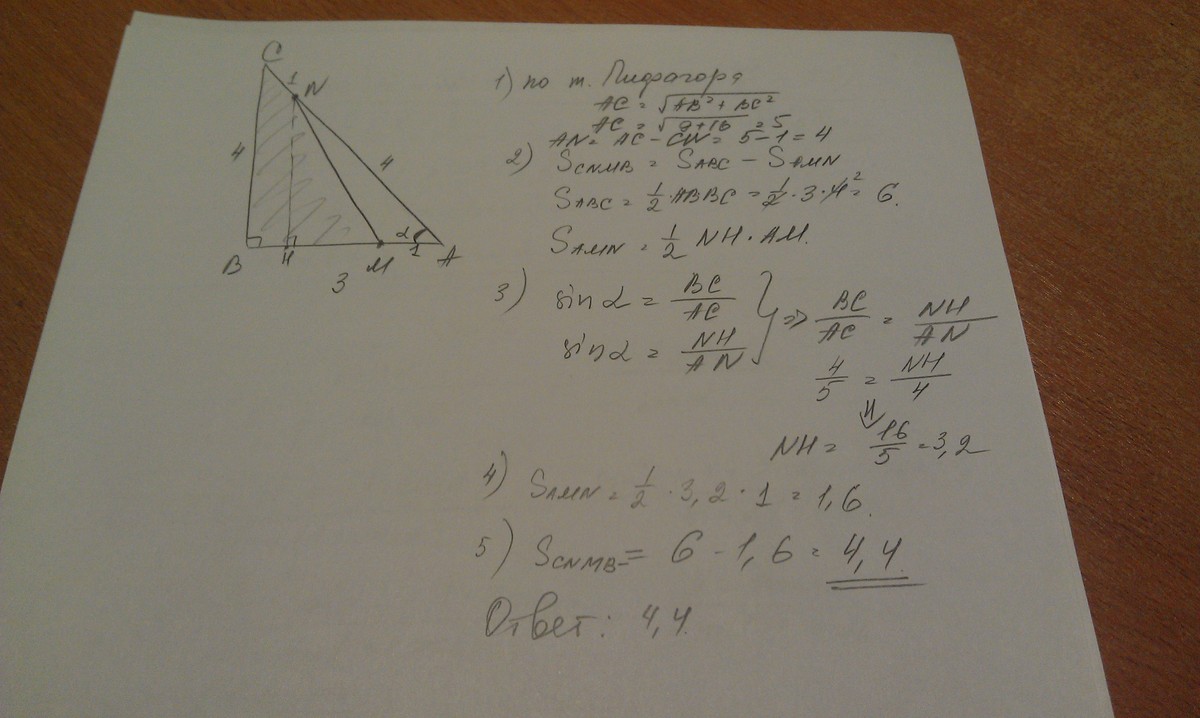 C
1
N
4
4
B
H
3
M
α
1
A
1) по т. Пифагора
AC = √AB² + BC²
AC = √9+16 = 5
AN = AC - CN = 5-1 = 4
2) SCNMB = SABC - SAMN
SABC = 1/2 · AB BC = 1/2 · 3 · 4² = 6.
SAMN = 1/2 NH · AM.
3) sin α = BC/AC
sin α = NH/AN } => BC/AC = NH/AN
4/5 = NH/4
⇓
NH = 16/5 = 3,2
4) SAMN = 1/2 · 3,2 · 1 = 1,6.
5) SCNMB = 6 - 1,6 = 4,4.
Ответ: 4,4.